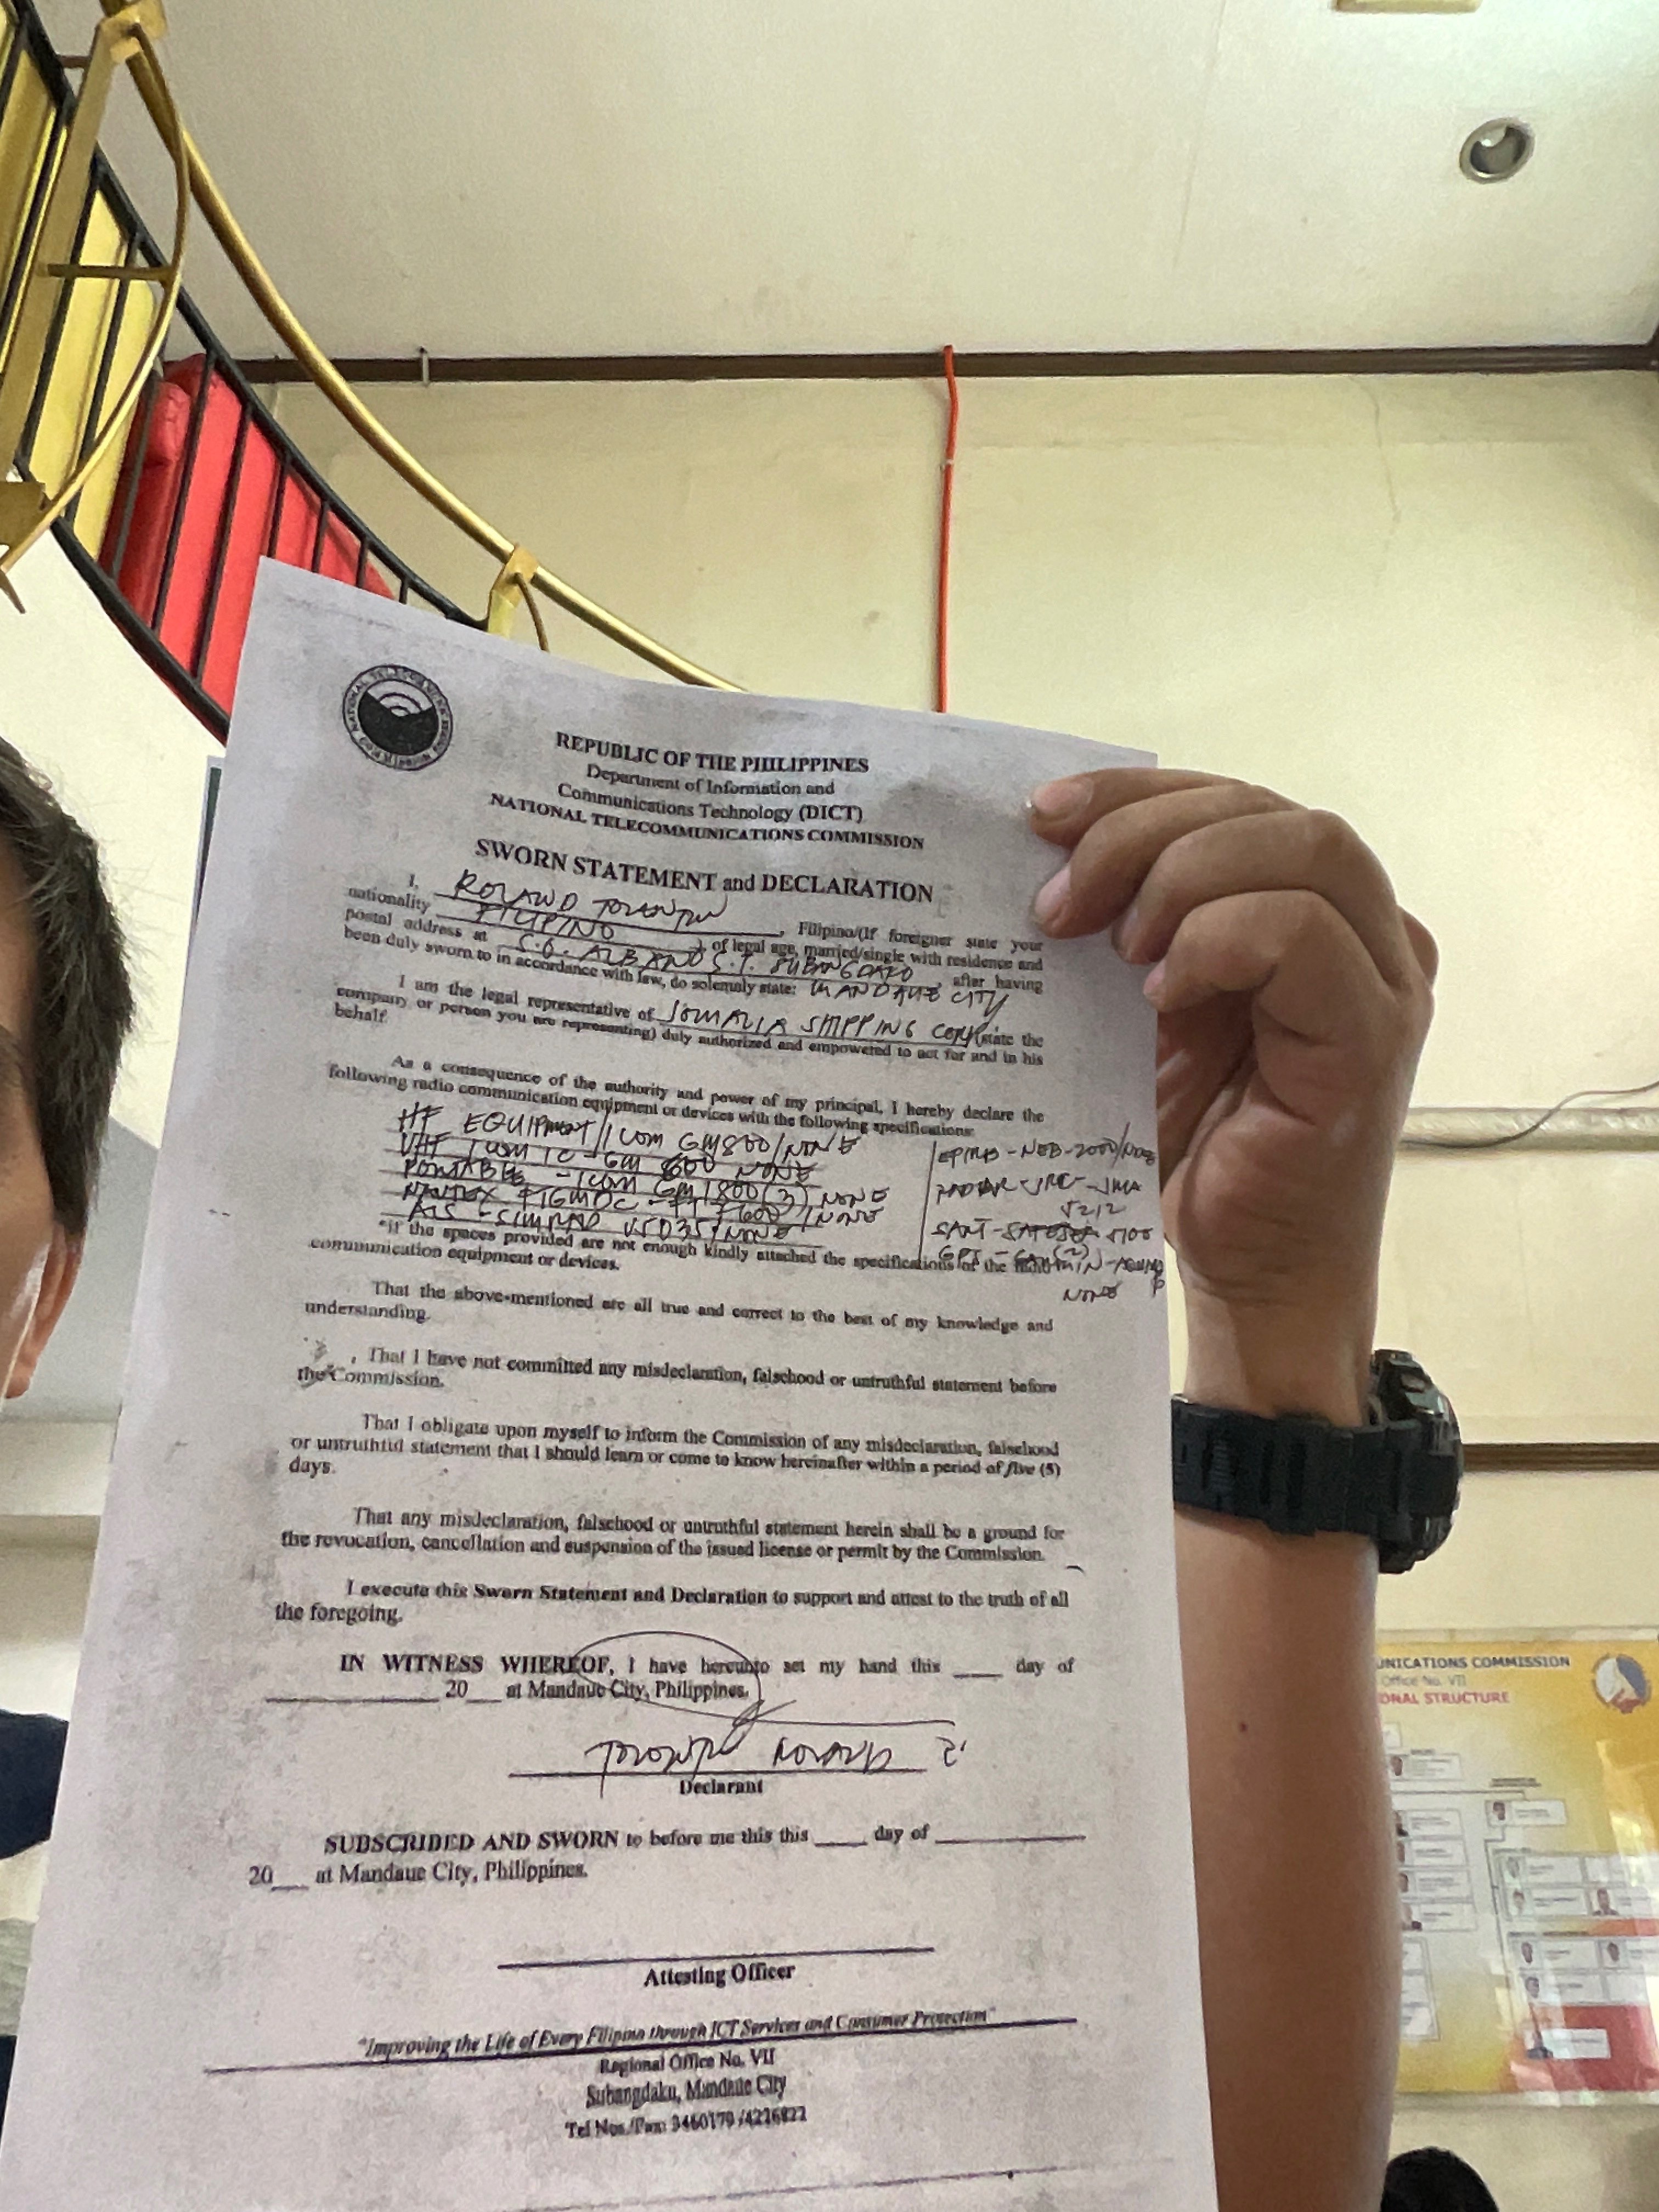 REPUBLIC OF THE PHILIPPINES
Department of Information and
Communications Technology (DICT)
NATIONAL TELECOMMUNICATIONS COMMISSION
SWORN STATEMENT and DECLARATION
I, ROLAND, Filipino/(If foreigner state your
nationality FILIPINO), of legal age, married/single with residence and
postal address at S.O. ALBANO S.T. SUBANGDAKO, after having
been duly sworn to in accordance with law, do solemnly state: MANDAUE CITY
I am the legal representative of SHIPPING CORP (state the
company or person you are representing) duly authorized and empowered to act for and in his
behalf.
As a consequence of the authority and power of my principal, I hereby declare the
following radio communication equipment or devices with the following specifications:
HF EQUIPMENT/ICOM GM800/NONE
VHF ICOM IC-GM 600 NONE
PORTABLE - ICOM GM1600 (3) NONE
NAVTEX - NONE
AIS - SIMRAD V5035/NONE
EPIRB - NEB-2000/NONE
RADAR - JRC - JMA
5212
SART - 5100
GPS - GARMIN
NONE
*if the spaces provided are not enough kindly attached the specifications of the radio
communication equipment or devices.
That the above-mentioned are all true and correct to the best of my knowledge and
understanding.
, That I have not committed any misdeclaration, falsehood or untruthful statement before
the Commission.
That I obligate upon myself to inform the Commission of any misdeclaration, falsehood
or untruthful statement that I should learn or come to know hereinafter within a period of five (5)
days.
That any misdeclaration, falsehood or untruthful statement herein shall be a ground for
the revocation, cancellation and suspension of the issued license or permit by the Commission.
I execute this Sworn Statement and Declaration to support and attest to the truth of all
the foregoing.
IN WITNESS WHEREOF, I have hereunto set my hand this ____ day of
____ 20__ at Mandaue City, Philippines.
Declarant
SUBSCRIBED AND SWORN to before me this this ____ day of ____
20__ at Mandaue City, Philippines.
Attesting Officer
"Improving the Life of Every Filipino through ICT Services and Consumer Protection"
Regional Office No. VII
Subangdaku, Mandaue City
Tel Nos./Fax: 3460179 /4226822
UNICATIONS COMMISSION
Office No. VII
ONAL STRUCTURE